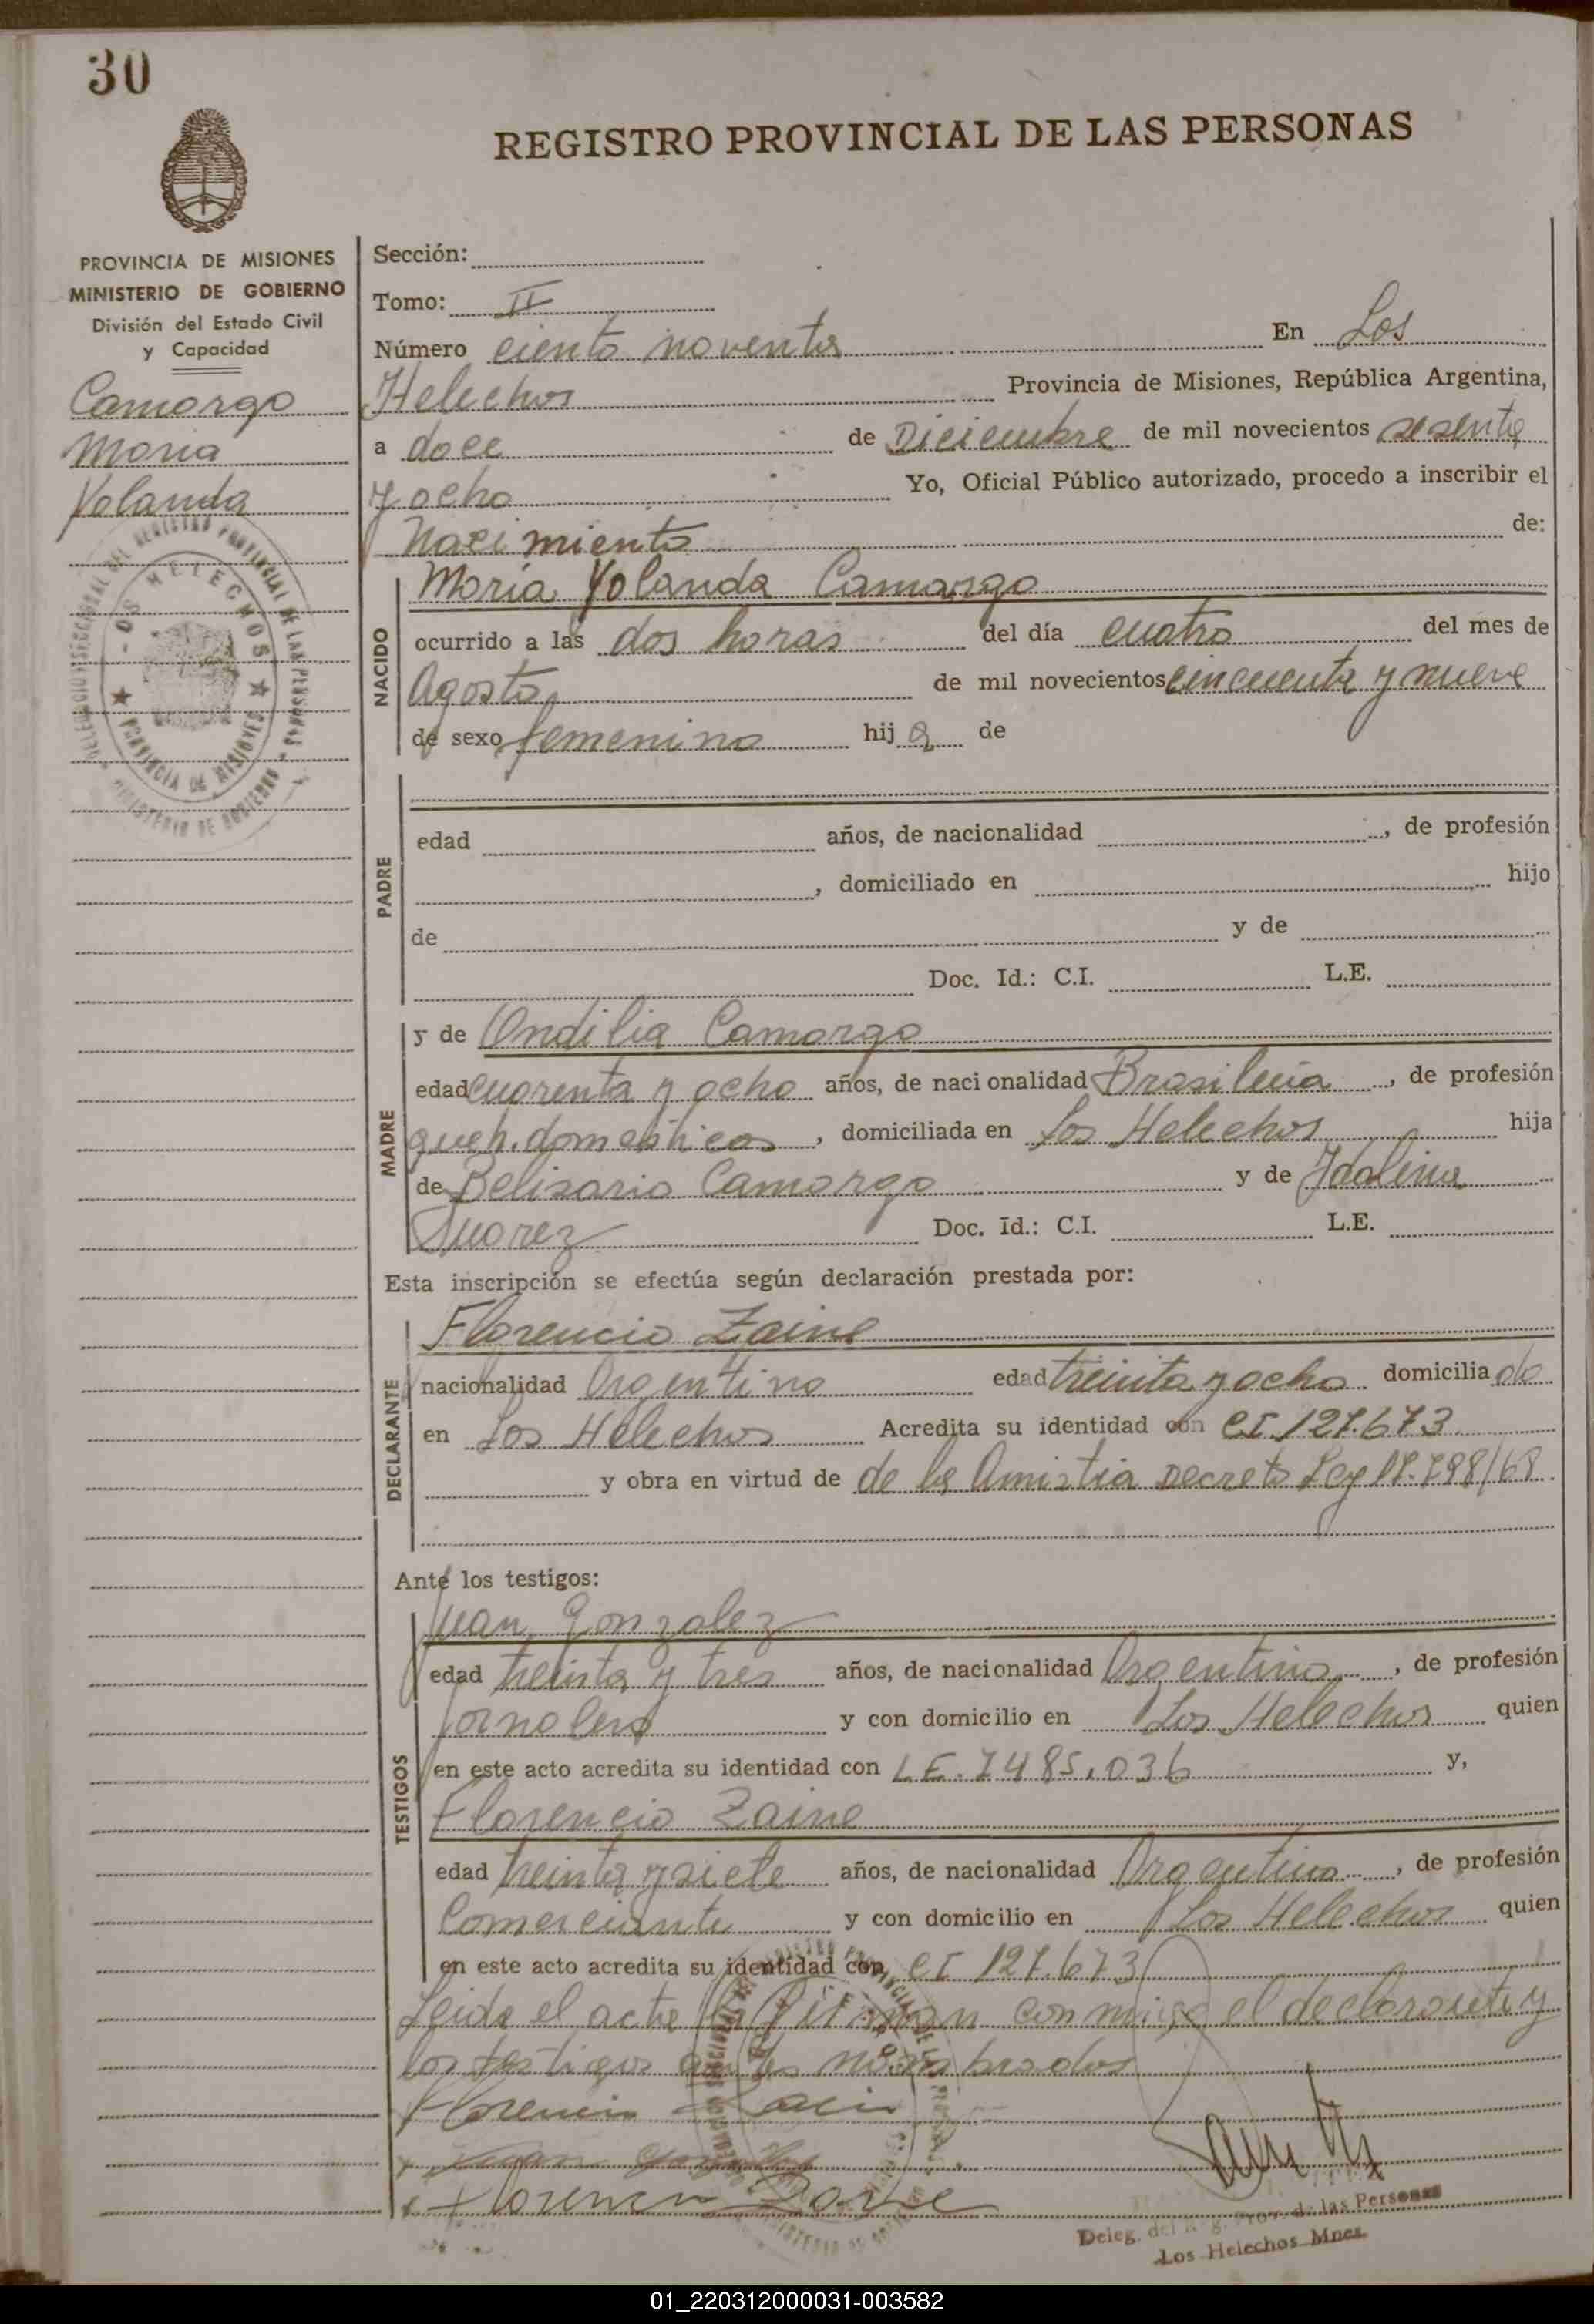 30
REGISTRO PROVINCIAL DE LAS PERSONAS
PROVINCIA DE MISIONES
MINISTERIO DE GOBIERNO
División del Estado Civil
y Capacidad
Camargo
Maria
Yolanda
Sección:
Tomo: II
Número ciento noventa En Los
Helechos Provincia de Misiones, República Argentina,
a doce de Diciembre de mil novecientos sesenta
y ocho Yo, Oficial Público autorizado, procedo a inscribir el
Nacimiento de:
NACIDO
María Yolanda Camargo
ocurrido a las dos horas del día cuatro del mes de
Agosto de mil novecientos cincuenta y nueve
de sexo femenino hija de
PADRE
edad años, de nacionalidad , de profesión
, domiciliado en hijo
de y de
Doc. Id.: C.I. L.E.
MADRE
y de Ondilia Camargo
edad cuarenta y ocho años, de nacionalidad Brasileña, de profesión
queh. domesticos, domiciliada en Los Helechos hija
de Belisario Camargo y de Idalina
Suarez Doc. Id.: C.I. L.E.
Esta inscripción se efectúa según declaración prestada por:
DECLARANTE
Florencio Zaine
nacionalidad Argentino edad treinta y ocho domiciliado
en Los Helechos Acredita su identidad con CI 127.673
y obra en virtud de de la Amistia Decreto Ley
Ante los testigos:
TESTIGOS
Juan Gonzalez
edad treinta y tres años, de nacionalidad Argentino, de profesión
Jornalero y con domicilio en Los Helechos quien
en este acto acredita su identidad con L E. 7485.036 y,
Florencio Zaine
edad treinta y siete años, de nacionalidad Argentino, de profesión
Comerciante y con domicilio en Los Helechos quien
en este acto acredita su identidad con CI 127.673
Leida el acta la firman conmigo el declarante y
los testigos antes nombrados
Florencio
Juan Gonzalez
Florencio Zaine
Deleg. del Reg. Prov. de las Personas
Los Helechos Mnes.
01_220312000031-003582